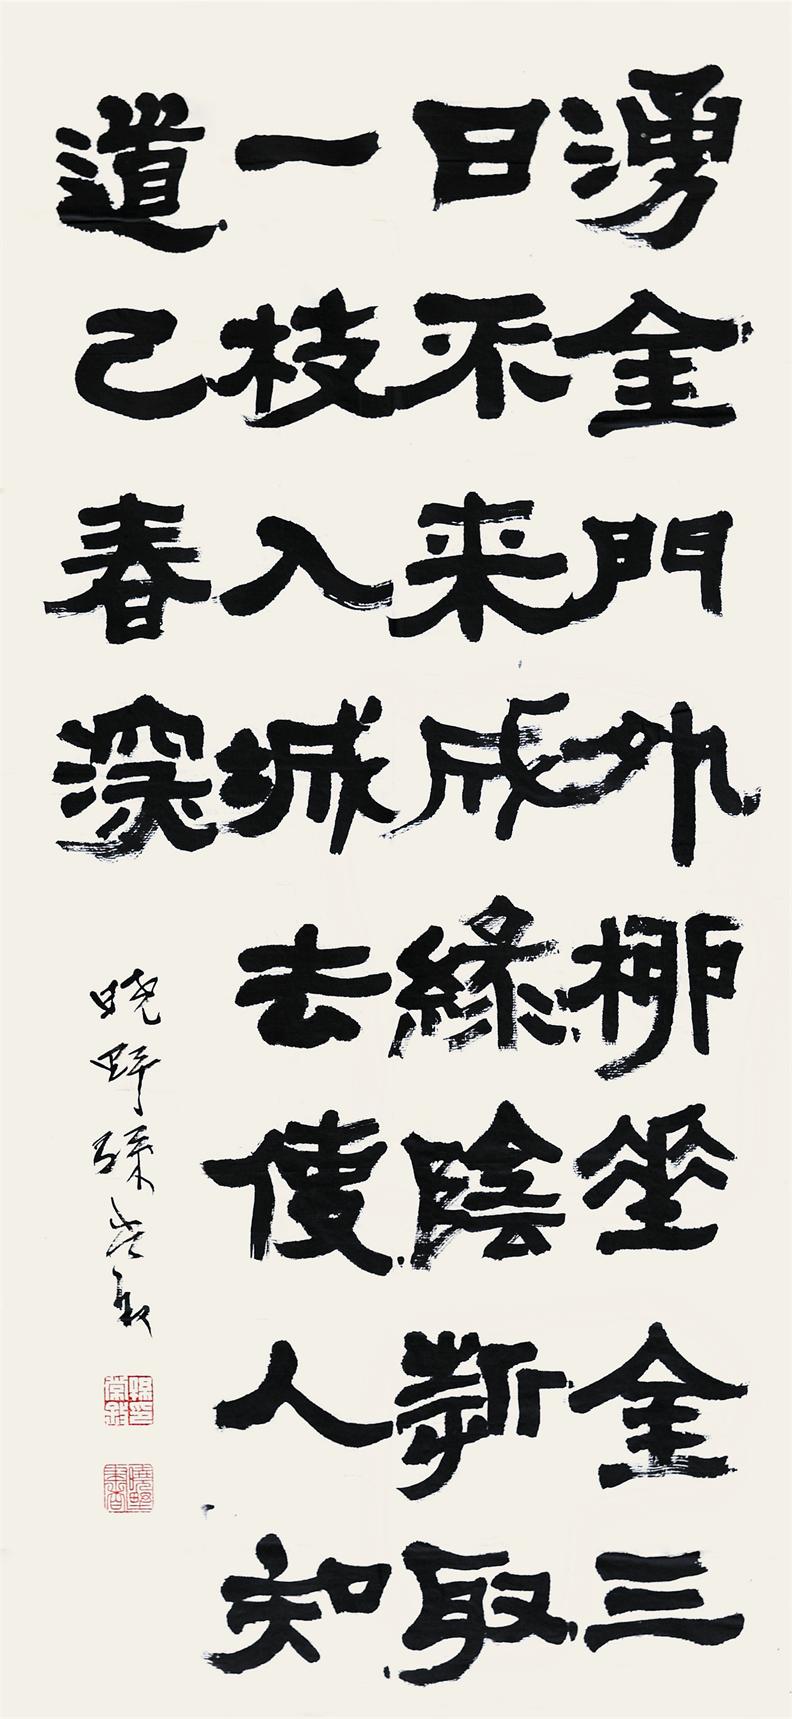 湧金門外柳垂金三
日不来成綠陰折取
一枝入城去使人知
道已春深
晓野孫常叙